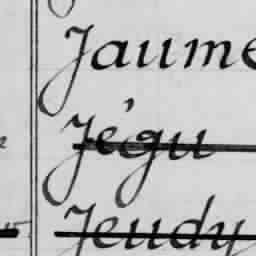 Jaume
Jégu
Jeudy